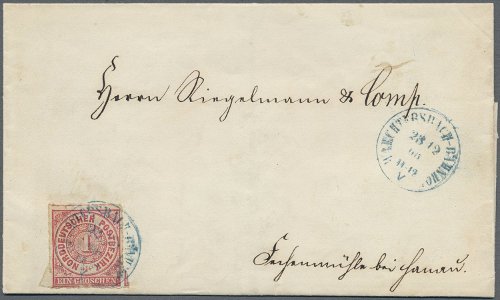 Herrn Riegelmann & Comp.
WÆCHTERSBACH-BAHNHOF
23 12
NORDDEUTSCHER POSTBEZIRK
1
EIN GROSCHEN
bei Hanau.